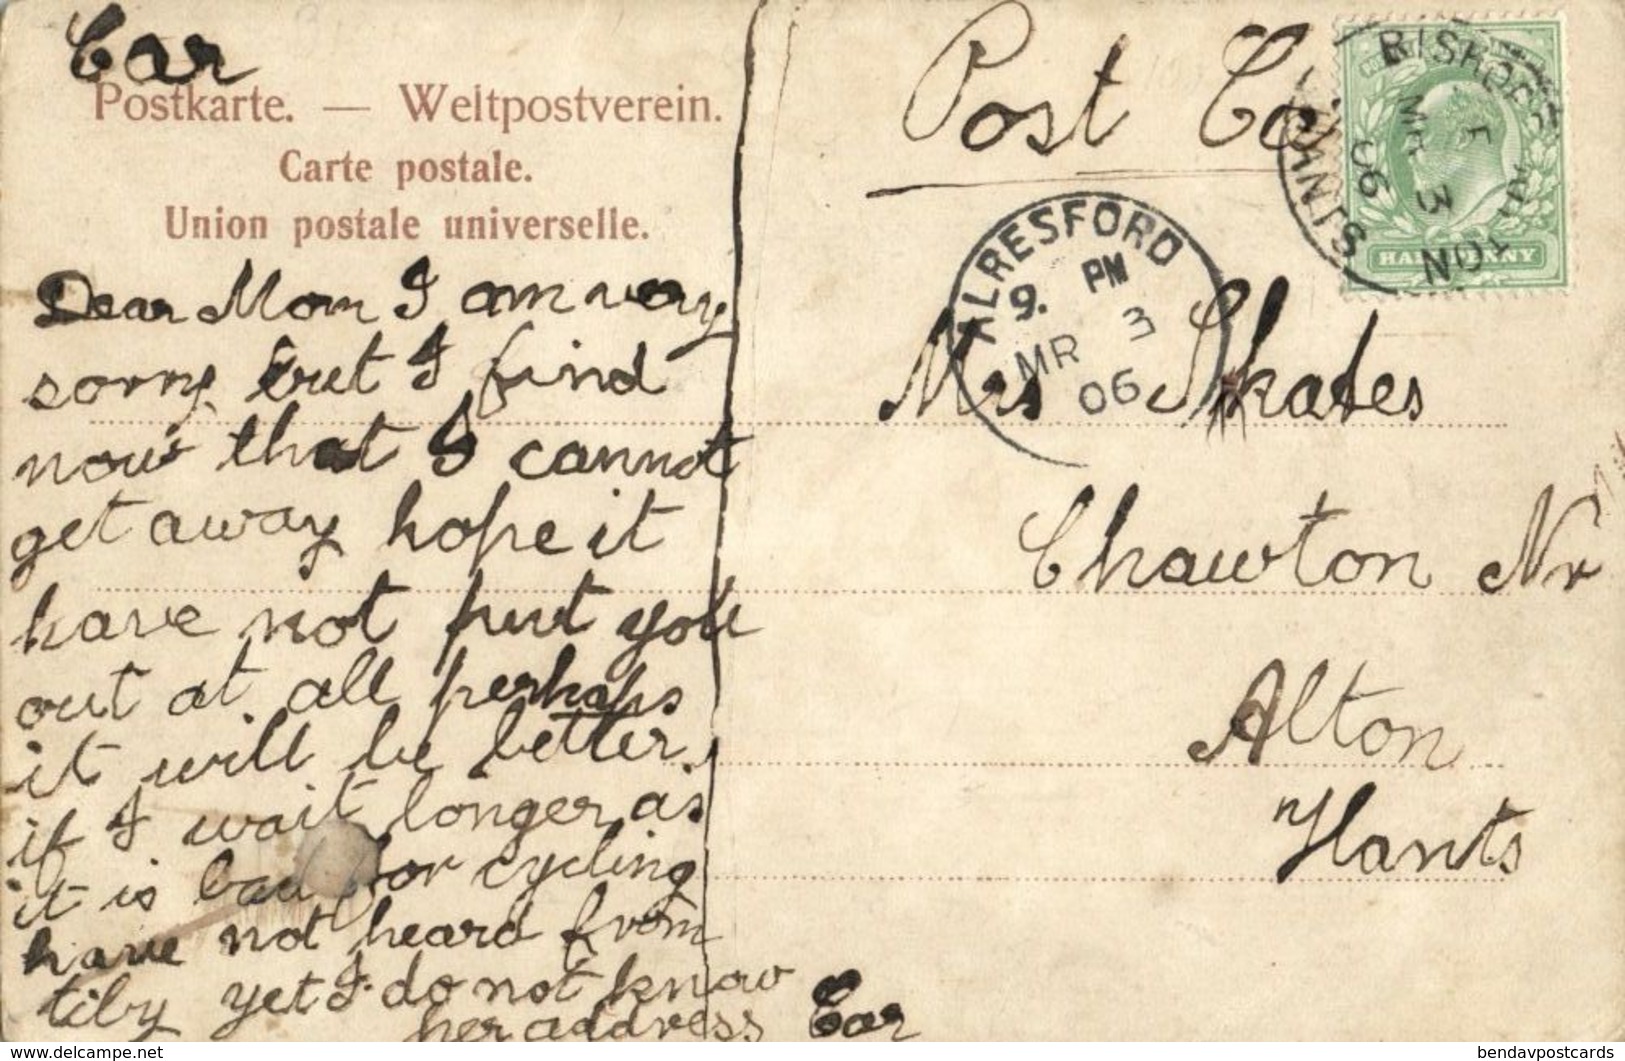 Car
Postkarte. — Weltpostverein.
Carte postale.
Union postale universelle.
Dear Mom I am very
sorry but I find
now that I cannot
get away hope it
have not put you
out at all perhaps
it will be better
if I wait longer as
it is bad for cycling
have not heard from
tiby yet I do not know
her address Car
Post
BISHOPS
WALTHAM
HANTS
MR 3
06
HALFPENNY
ALRESFORD
9. PM
MR 3
06
Mrs Skates
Chawton Nr
Alton
Hants
www.delcampe.net
bendavpostcards